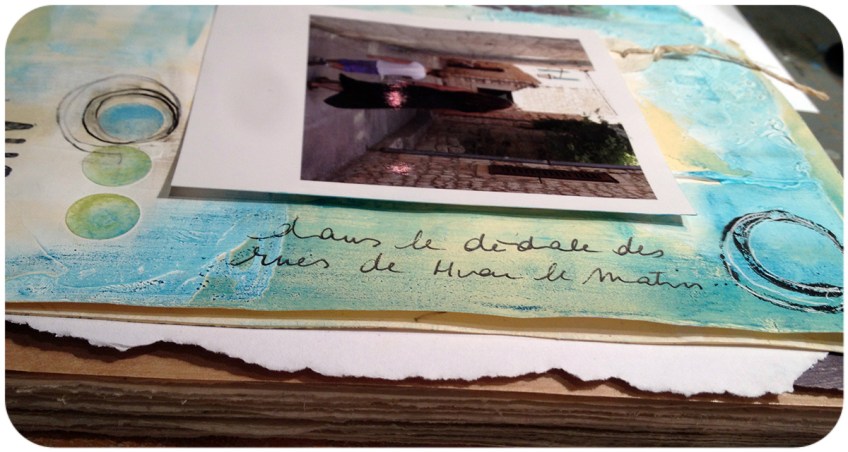 dans le dédale des
rues de Hvar le matin...